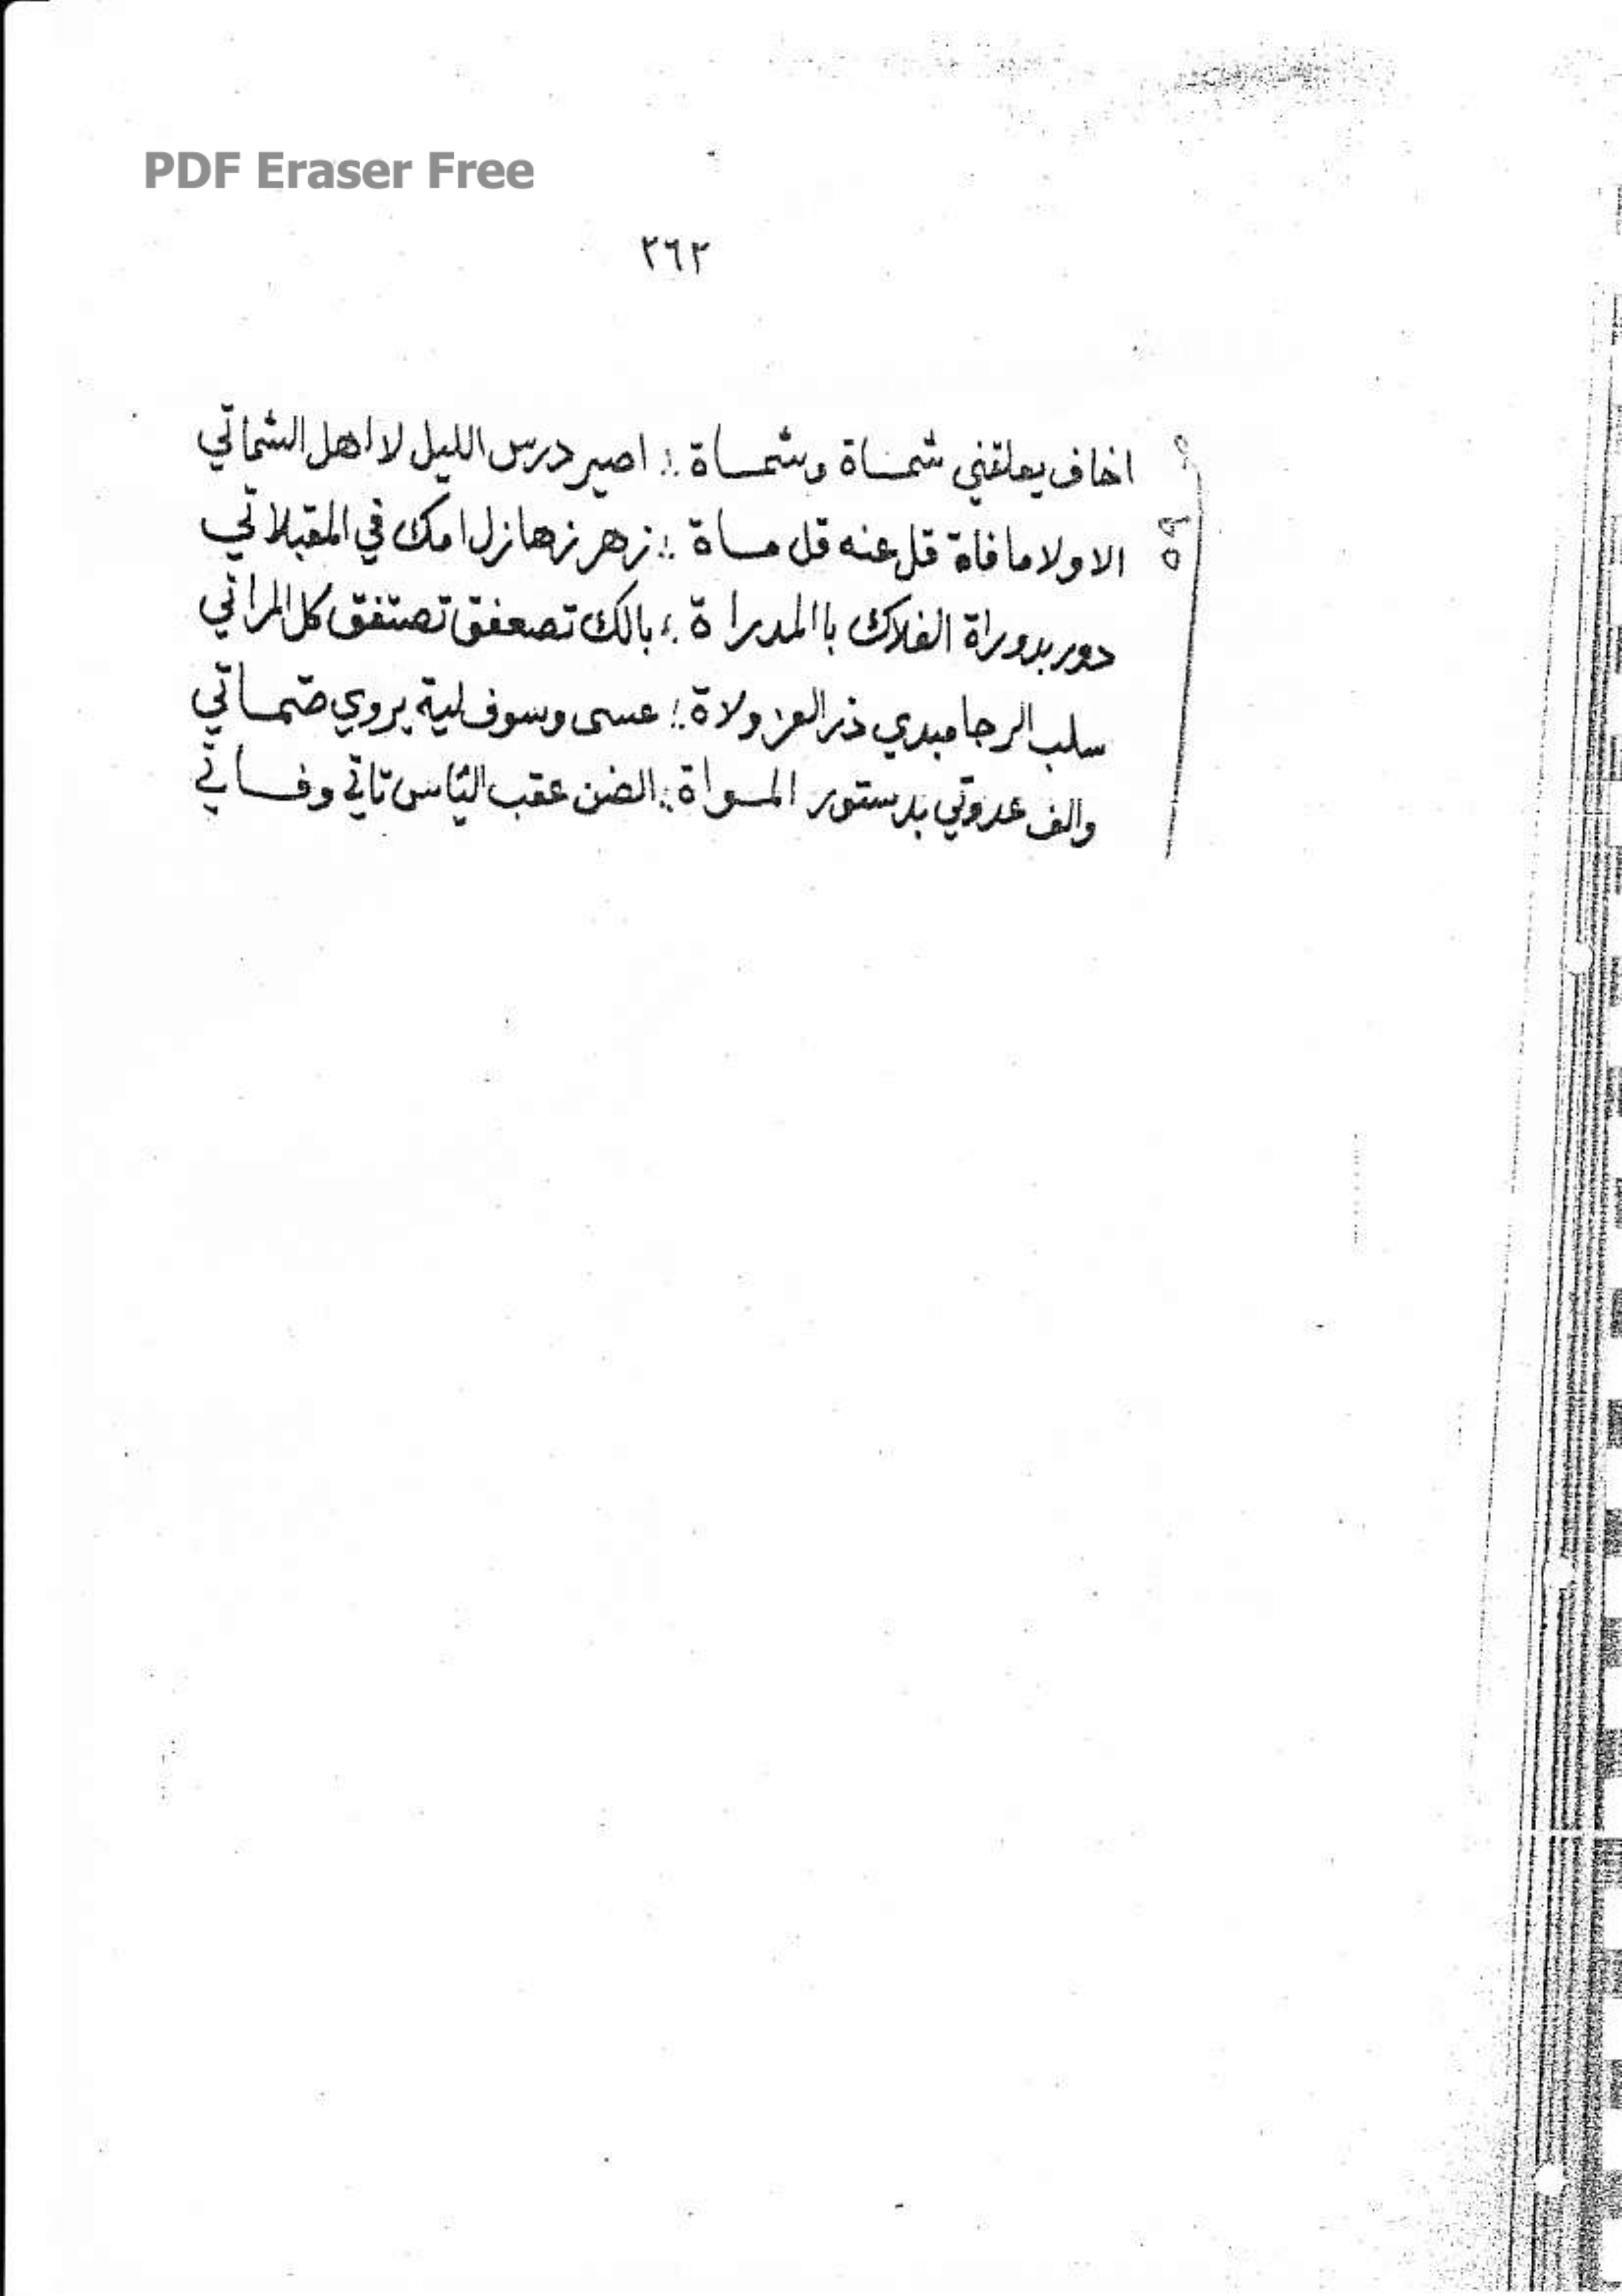 PDF Eraser Free
٢٦٢
اخاف يعلقني شمساة وشمساة ؛ اصير درس الليل لا اهل الشماتي
الاولا مافاة قل عنه قل مساة ؛ زهر زها زل امك في المقبلاتي
دور بدوراة الفلاك باالمدراة ؛ بالك تصعفق تصتفق كل المراتي
سلب الرجا مبدي ذر العز ولاة ؛ عسى وسوف لية يروي ضماتي
والف عدوتي بدستور المسواة ؛ الضن عقب الئاس تاتي وفساتي